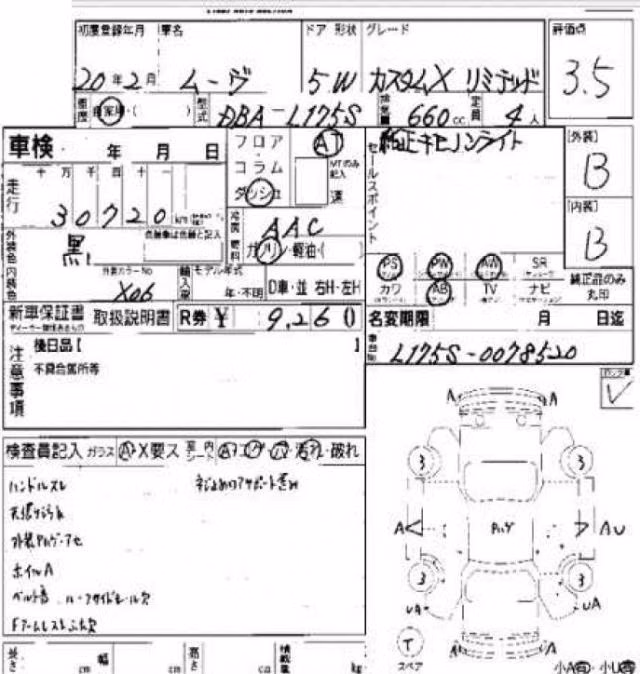 初度登録年月 車名 ドア 形状 グレード 評価点
20年2月 ムーヴ 5W カスタムX リミテッド 3.5
自家用・( ) 型式 DBA-L175S 排気量 660cc 定員 4人
車検 年 月 日 フロア AT 純正キセノンライト [外装]
コラム MTのみ記入 セールスポイント B
走行 十 万 千 百 十 一 ダッシュ 速 [内装]
30720km B
外装色 黒 色替車は色替と記入 冷房 AAC
燃料 ガソリン・軽油・( ) PS PW AW SR
内装色 外装カラーNo X06 輸入車 モデル年式 年・不明 D車・並 右H・左H カワ AB TV ナビ 純正品のみ丸印
新車保証書 取扱説明書 R券 ¥ 9,260 名変期限 月 日迄
車台No L175S-0078520
注意事項 後日品[ ]
不具合箇所等
検査員記入 ガラス A・X要ス 室内シート A・コゲ・穴・汚れ・破れ
ハンドルスレ
天張り汚れ
外装
ホイルA
ベルト音 ルーフサイドモール欠
Fアームレストふた欠
A A
3 3
A A U
3 3
UA UA
T
スペア A A
長さ cm 幅 cm 高さ cm 積載量 kg 小A 小U